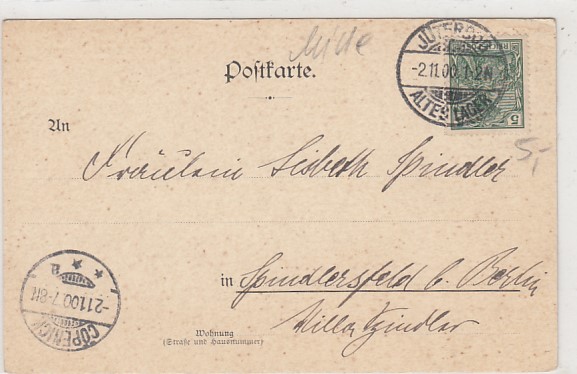 Mitte
Postkarte.
JÜTERBOG
-2.11.00.1-2N.
ALTES LAGER
5
5,-
An
Fräulein Lisbeth Spindler
in Spindlersfeld b. Berlin
Villa Spindler
Wohnung
(Straße und Hausnummer)
CÖPENICK
-2.11.00.7-8N.